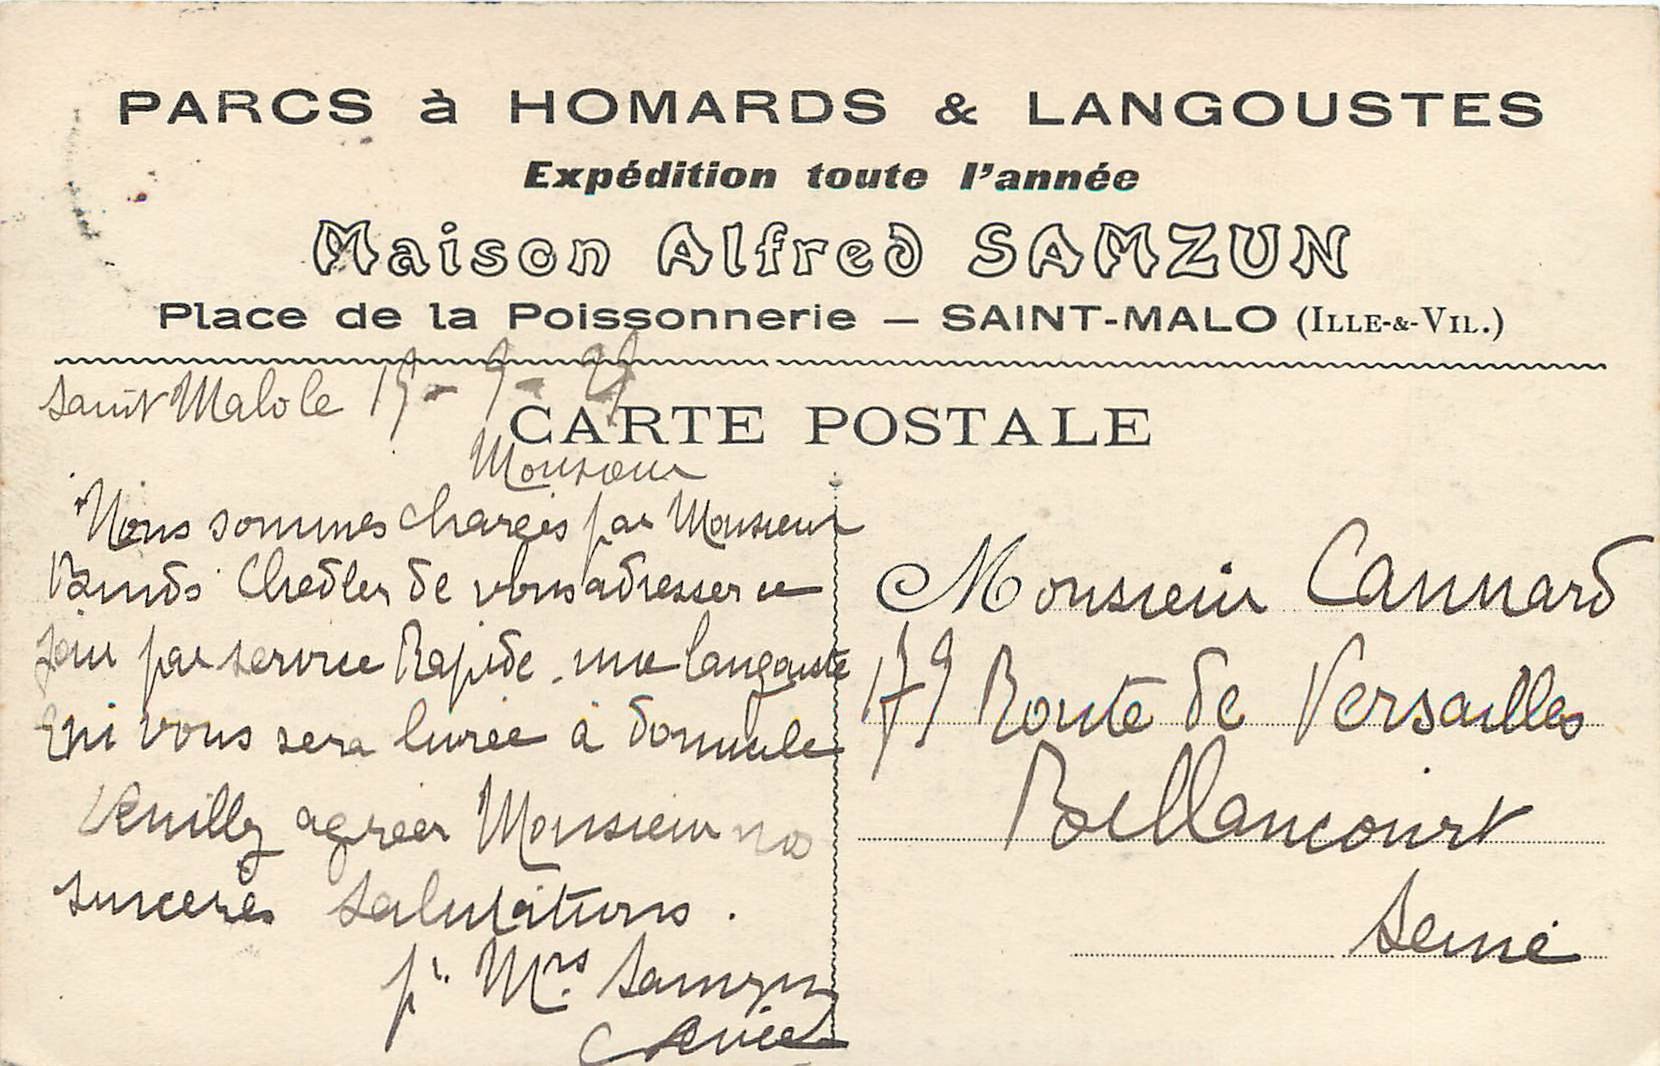 PARCS à HOMARDS & LANGOUSTES
Expédition toute l'année
Maison Alfred SAMZUN
Place de la Poissonnerie — SAINT-MALO (ILLE-&-VIL.)
Saint Malo le 15 - 9 -
CARTE POSTALE
Monsieur
Nous sommes chargés par Monsieur
Chedler de vous adresser ce
jour par service Rapide. une langouste
qui vous sera livrée à domicile
Veuillez agréer Monsieur nos
sincères salutations.
pr. Mrs Samzun
Monsieur Cannard
179 Route de Versailles
Billancourt
Seine